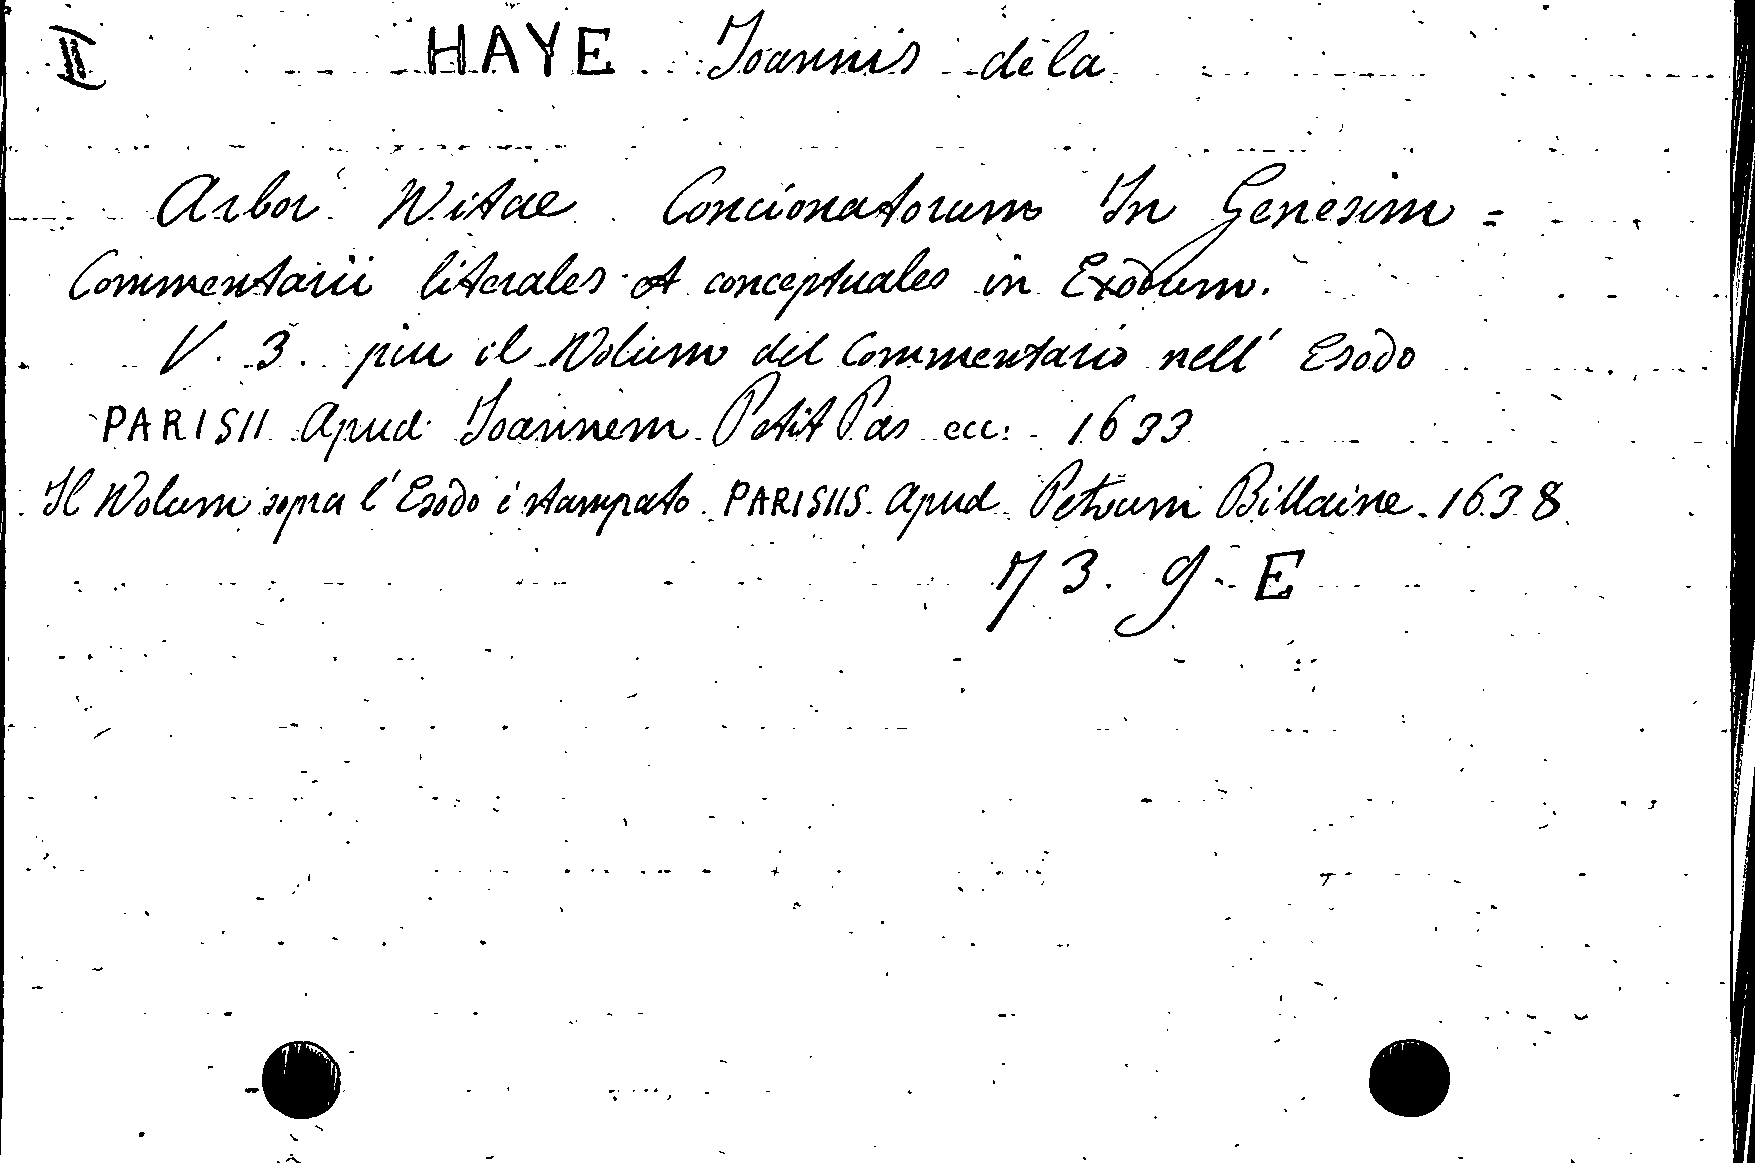 II HAYE Joannis de la
Arbor Vitae Concionatorum In Genesim =
Commentarii literales et conceptuales in Exodum.
V. 3. piu il Volum del Commentario nell' Esodo
PARISII Apud Joannem Petit Pas ecc: 1633
Il Volum sopra l' Esodo è stampato PARISIIS Apud Petrum Billaine. 1638
73. 9. E